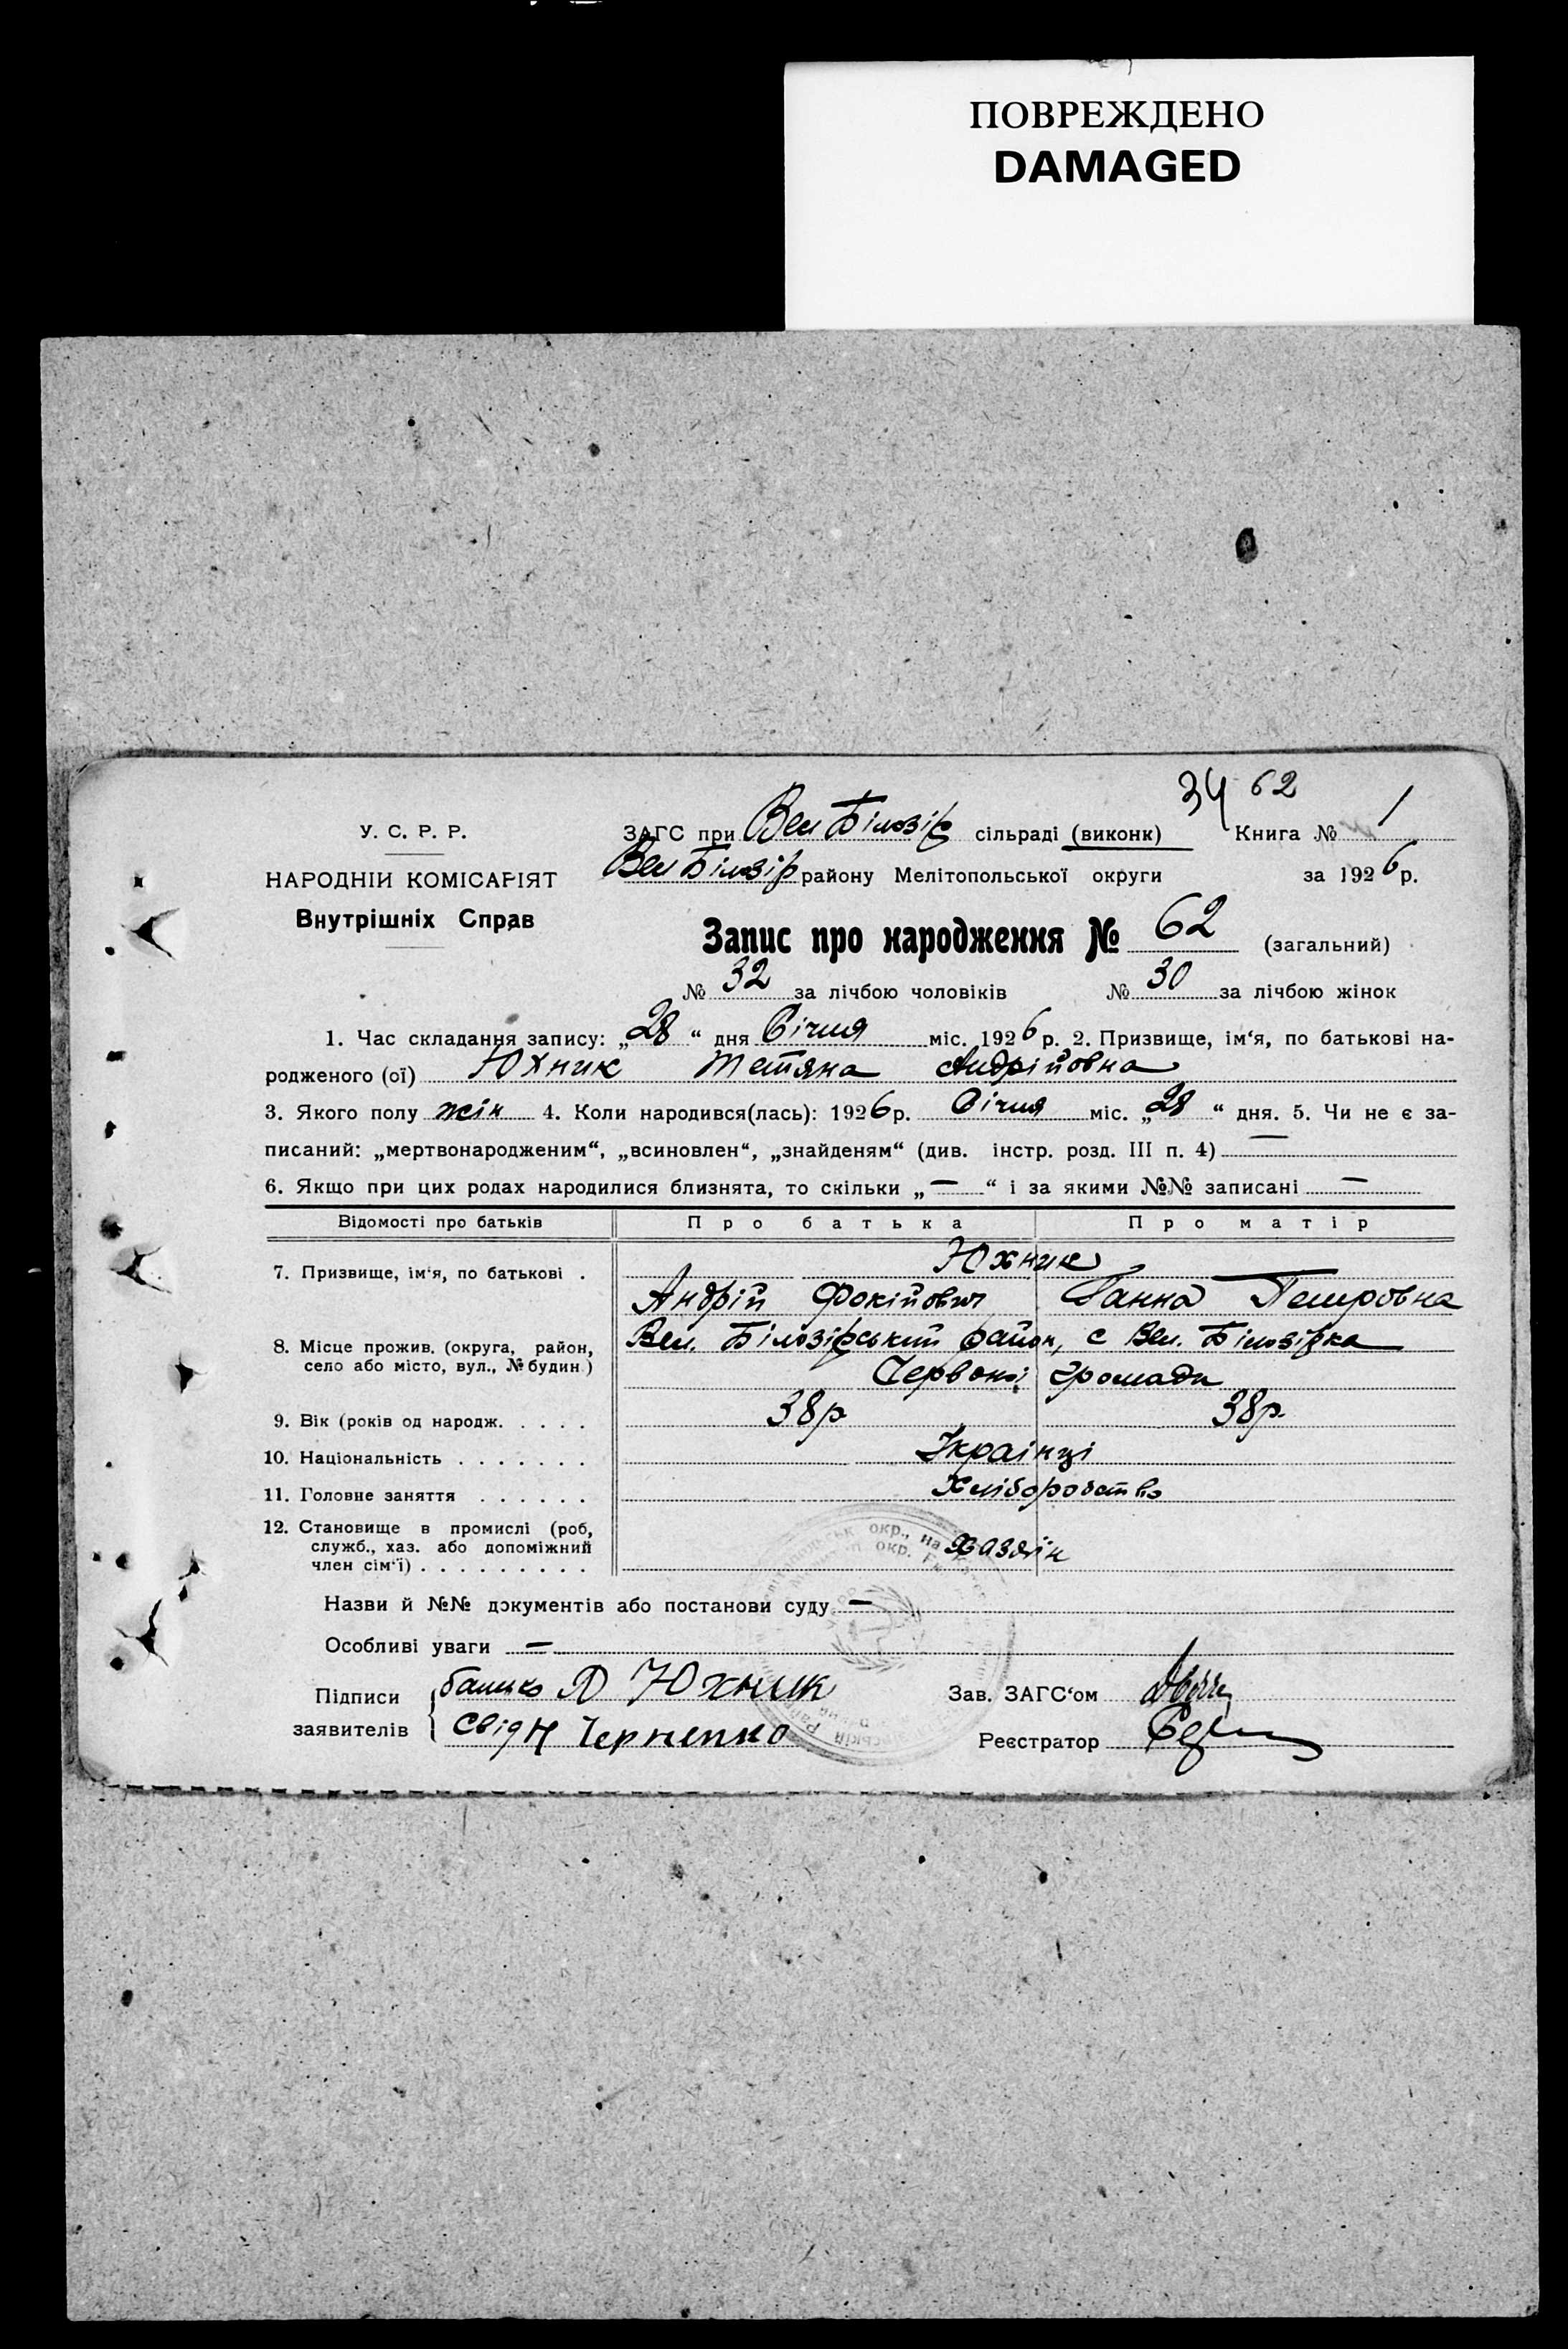 ПОВРЕЖДЕНО
DAMAGED
34 62
У. С. Р. Р.
ЗАГС при Вел Білозір сільраді (виконк) Книга № 1
НАРОДНІЙ КОМІСАРІЯТ
Вел Білозір району Мелітопольської округи за 1926 р.
Внутрішніх Справ
Запис про народження № 62 (загальний)
№ 32 за лічбою чоловіків № 30 за лічбою жінок
1. Час складання запису: „28“ дня Січня міс. 1926 р. 2. Призвище, ім‘я, по батькові на-
родженого (ої) Юхник Тетяна Андрійовна
3. Якого полу жін 4. Коли народився(лась): 1926 р. Січня міс. „28“ дня. 5. Чи не є за-
писаний: „мертвонародженим“, „всиновлен“, „знайденям“ (див. інстр. розд. III п. 4) —
6. Якщо при цих родах народилися близнята, то скільки „—“ і за якими №№ записані —
Відомості про батьків Про батька Про матір
7. Призвище, ім‘я, по батькові . Юхник
Андрій Фокійович Ганна Петровна
8. Місце прожив. (округа, район, село або місто, вул., № будин.) Вел. Білозірський район, с Вел. Білозірка
Червоної громади
9. Вік (років од народж. . . . . 38р 38р.
10. Національність . . . . . . . Українці
11. Головне заняття . . . . . . Хліборобство
12. Становище в промислі (роб,
служб., хаз. або допоміжний
член сім‘ї) . . . . . . . . . хазяїн
Назви й №№ документів або постанови суду —
Особливі уваги —
Підписи батько А Юхник Зав. ЗАГС‘ом
заявителів свід Н Черненко Реєстратор